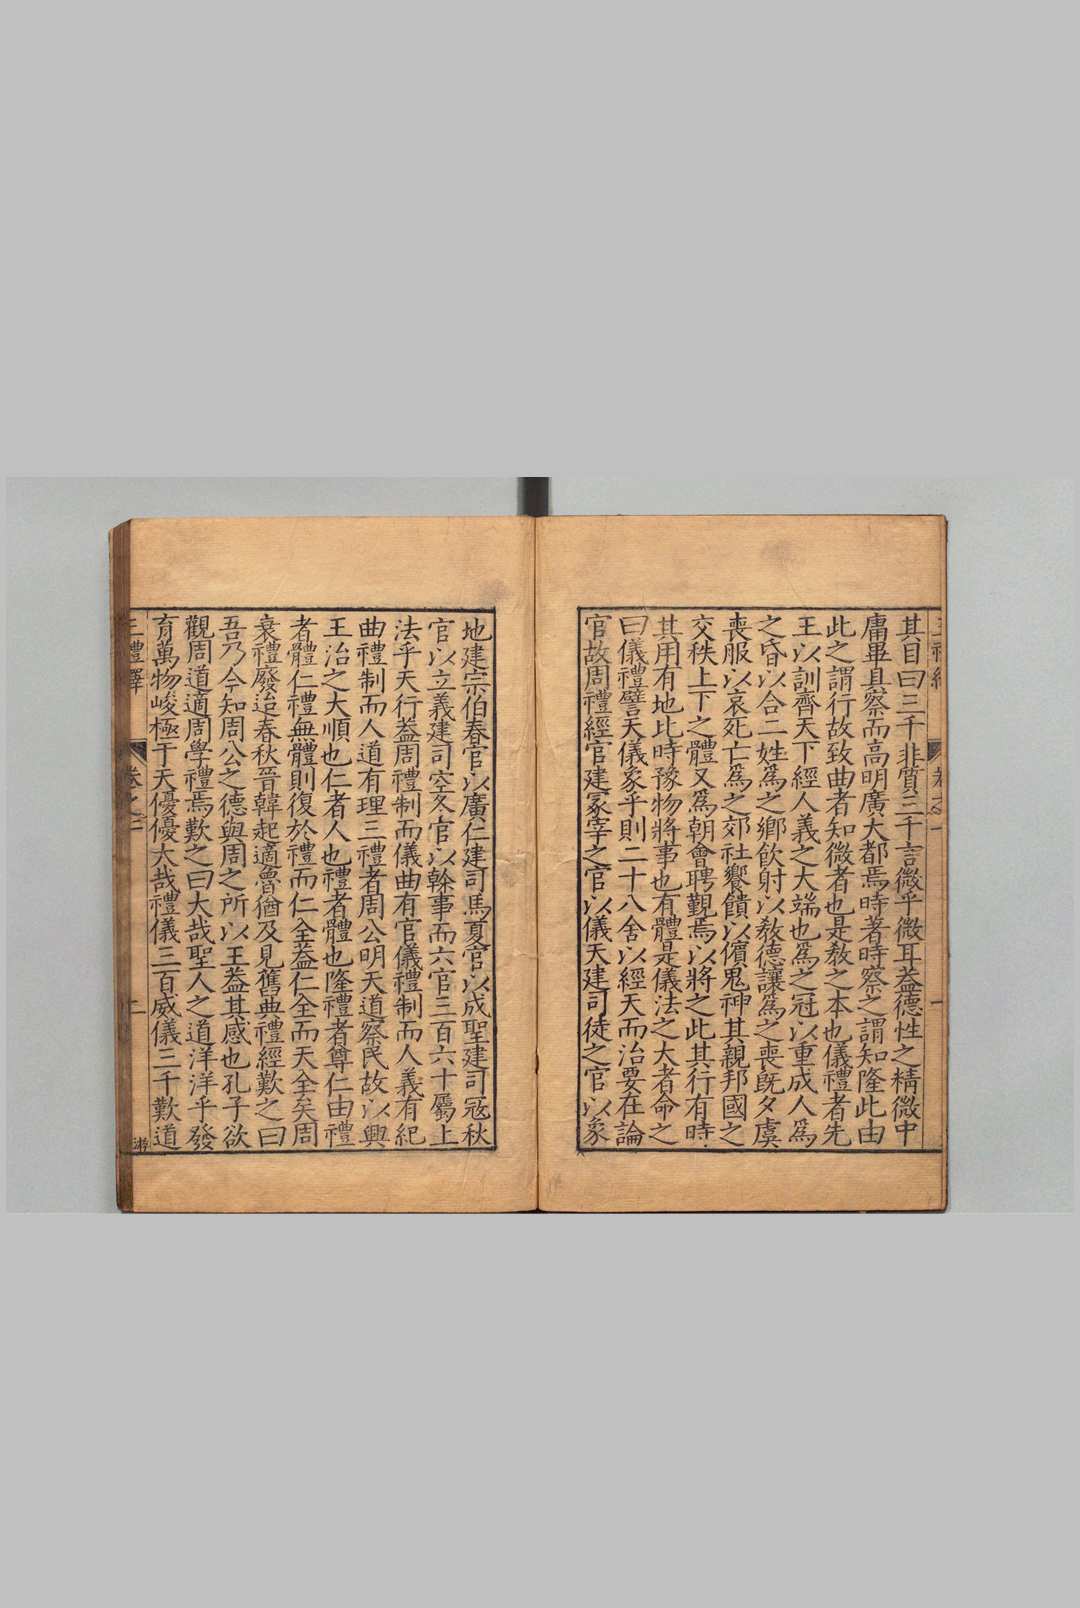 其目曰三千非質三千言微乎微耳葢德性之精微中
庸畢具察而高明廣大都焉時著時察之謂知隆此由
此之謂行故致曲者知微者也是教之本也儀禮者先
王以訓齊天下經人義之大端也爲之冠以重成人爲
之昏以合二姓爲之鄉飲射以教德讓爲之喪旣夕虞
喪服以哀死亡爲之郊社饗饋以儐鬼神其親邦國之
交秩上下之體又爲朝會聘覲焉以將之此其行有時
其用有地比時豫物將事也有體是儀法之大者命之
曰儀禮譬天儀象乎則二十八舍以經天而治要在論
官故周禮經官建冢宰之官以儀天建司徒之官以象
地建宗伯春官以廣仁建司馬夏官以成聖建司宼秋
官以立義建司空冬官以榦事而六官三百六十屬上
法乎天行葢周禮制而儀曲有官儀禮制而人義有紀
曲禮制而人道有理三禮者周公明天道察民故以興
王治之大順也仁者人也禮者體也隆禮者尊仁由禮
者體仁禮無體則復於禮而仁全葢仁全而天全矣周
衰禮廢迨春秋晉韓起適魯猶及見舊典禮經歎之曰
吾乃今知周公之德與周之所以王葢其感也孔子欲
觀周道適周學禮焉歎之曰大哉聖人之道洋洋乎發
育萬物峻極于天優優大哉禮儀三百威儀三千歎道
三禮繹
卷之一
二